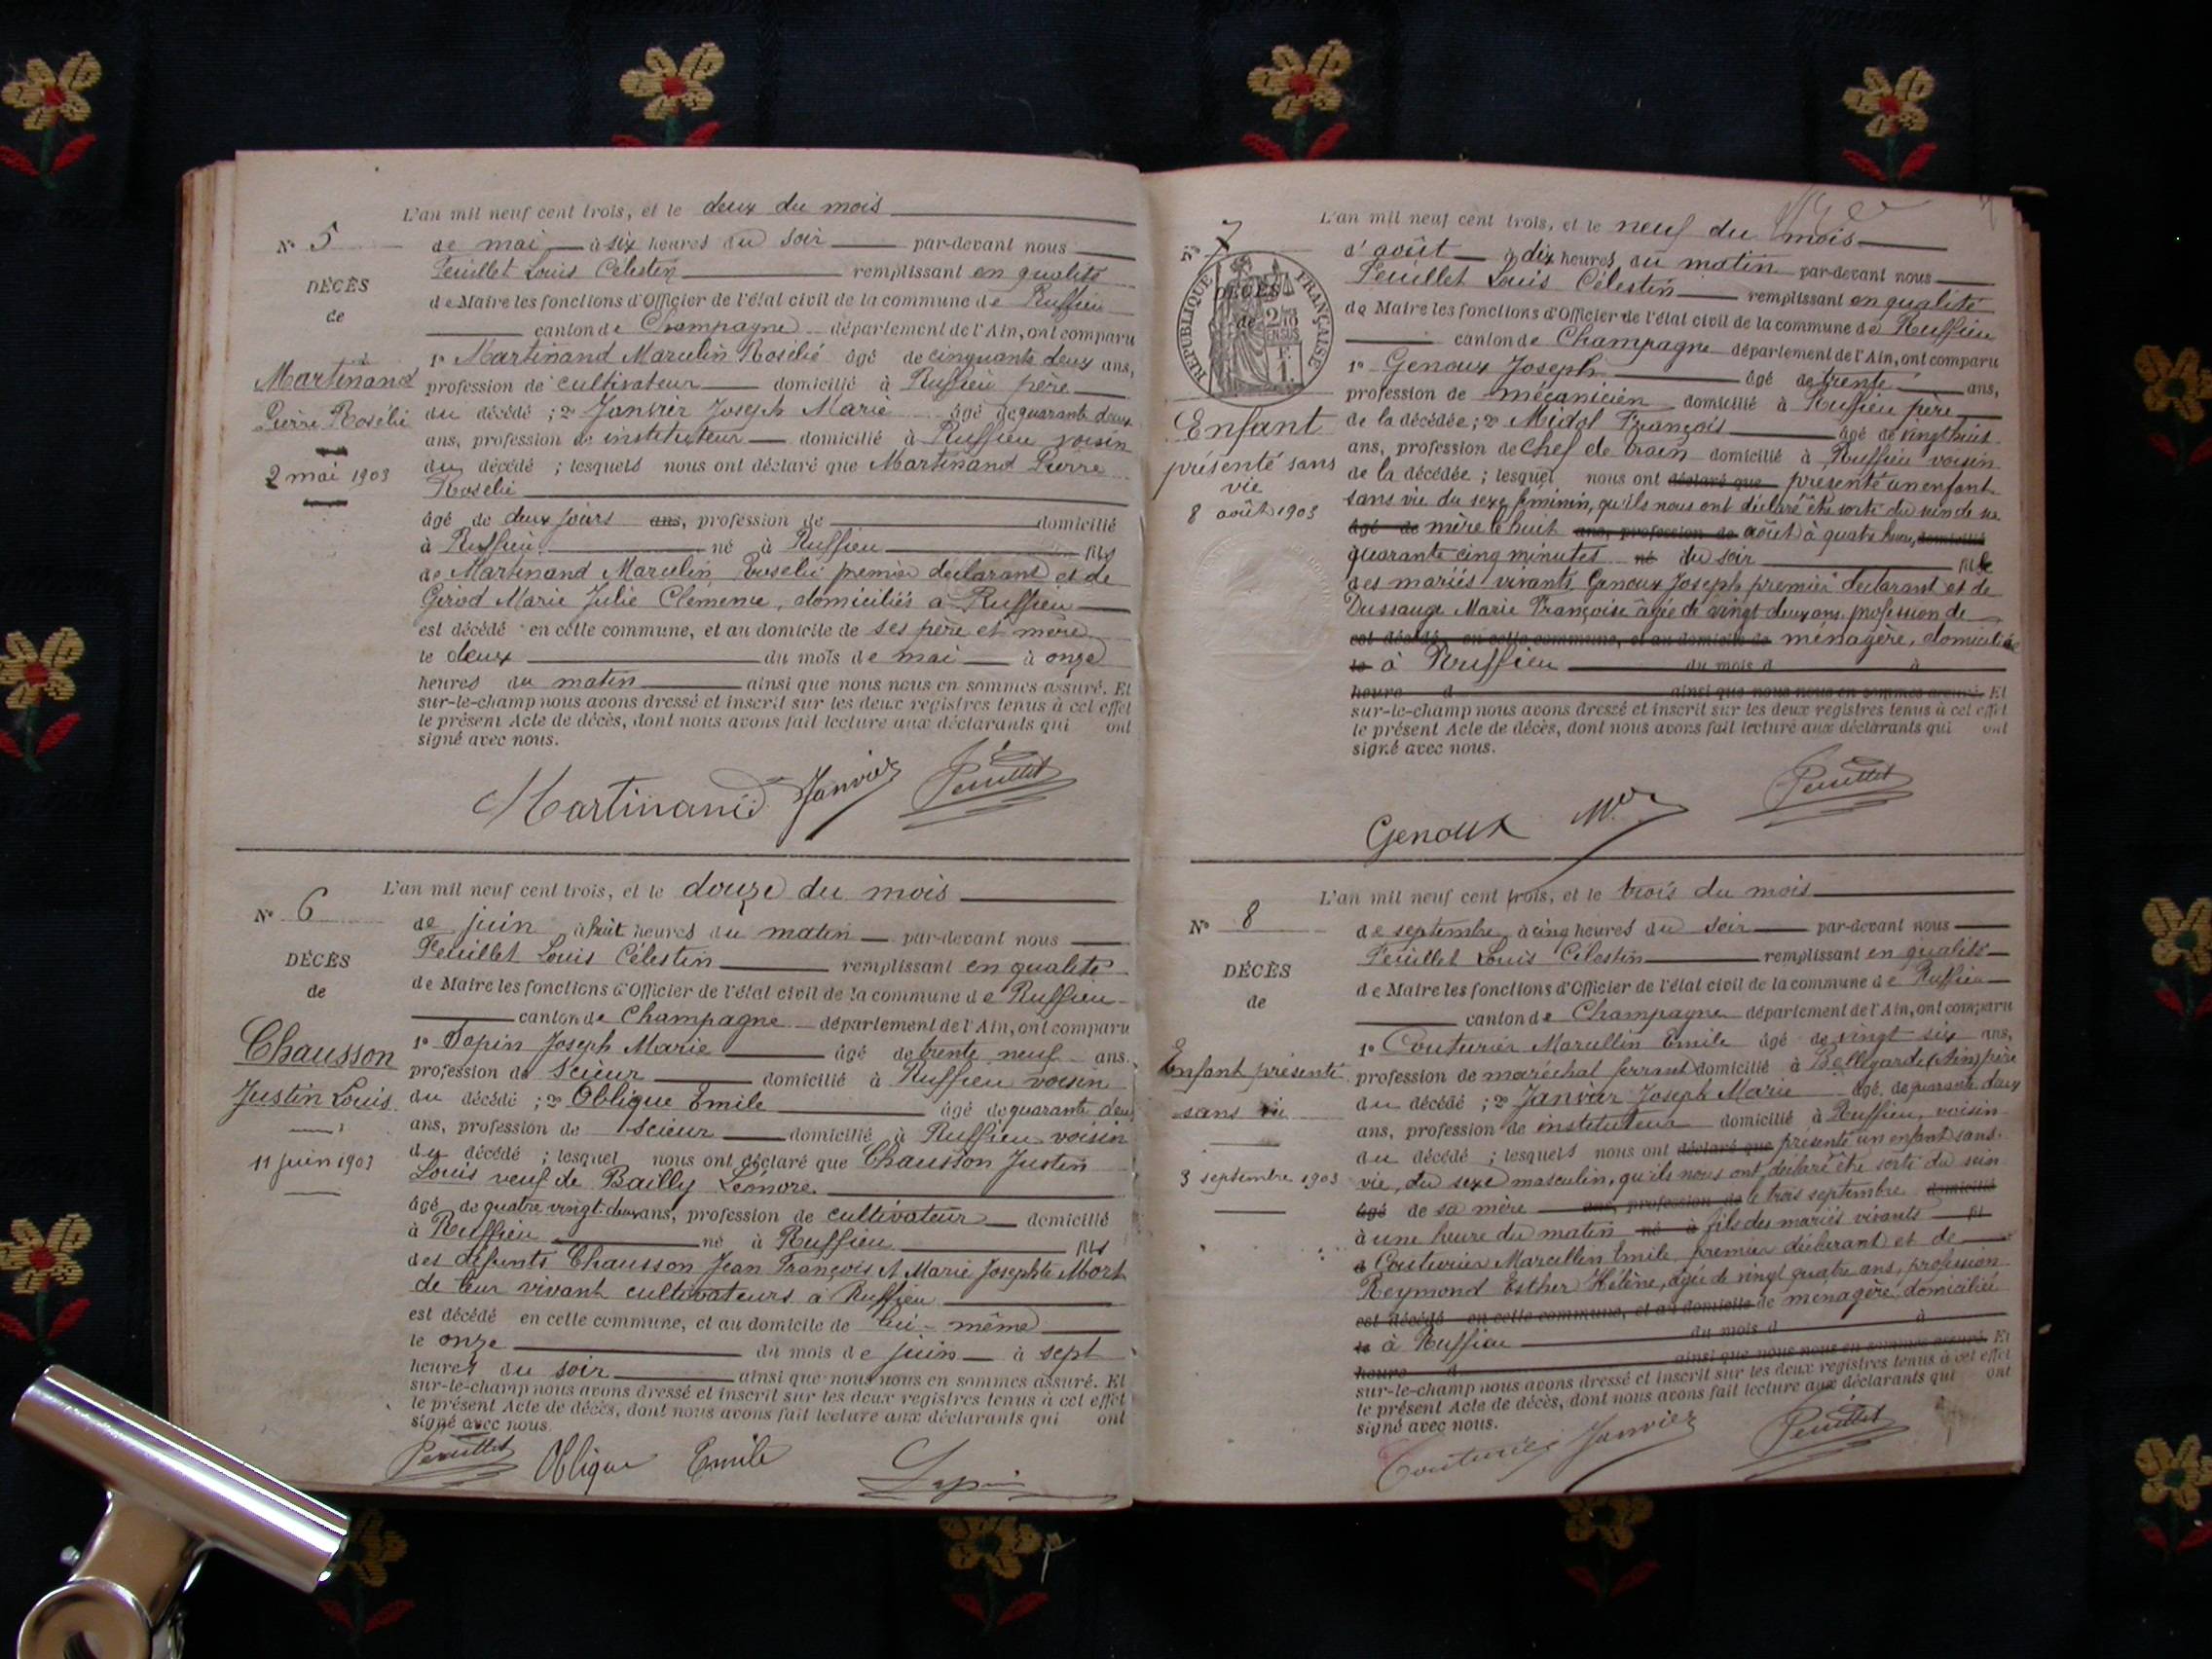 L'an mil neuf cent trois, et le deux du mois
N° 5
de mai à six heures du soir par-devant nous
Feuillet Louis Célestin remplissant en qualité
DÉCÈS
de Maire les fonctions d'Officier de l'état civil de la commune de Ruffieu
de
canton de Champagne département de l'Ain, ont comparu
1° Martinand Marcelin Rosélié âgé de cinquante deux ans,
Martinand
profession de cultivateur domicilié à Ruffieu père
Pierre Rosélié
du décédé ; 2° Janvier Joseph Marie âgé de quarante deux
ans, profession de instituteur domicilié à Ruffieu voisin
2 mai 1903
du décédé ; lesquels nous ont déclaré que Martinand Pierre
Rosélié
âgé de deux jours ans, profession de domicilié
à Ruffieu né à Ruffieu fils
de Martinand Marcelin Roselié premier déclarant et de
Girod Marie Julie Clémence, domiciliés à Ruffieu
est décédé en cette commune, et au domicile de ses père et mère
le deux du mois de mai à onze
heures du matin ainsi que nous nous en sommes assuré. Et
sur-le-champ nous avons dressé et inscrit sur les deux registres tenus à cet effet
le présent Acte de décès, dont nous avons fait lecture aux déclarants qui ont
signé avec nous.
Martinand Janvier Feuillet
L'an mil neuf cent trois, et le douze du mois
N° 6
de juin à huit heures du matin par-devant nous
Feuillet Louis Célestin remplissant en qualité
DÉCÈS
de Maire les fonctions d'Officier de l'état civil de la commune de Ruffieu
de
canton de Champagne département de l'Ain, ont comparu
1° Sapin Joseph Marie âgé de trente neuf ans.
Chausson
profession de Scieur domicilié à Ruffieu voisin
Justin Louis
du décédé ; 2° Oblique Emile âgé de quarante deux
ans, profession de Scieur domicilié à Ruffieu voisin
11 juin 1903
du décédé ; lesquel nous ont déclaré que Chausson Justin
Louis veuf de Bailly Léonore.
âgé de quatre vingt deux ans, profession de cultivateur domicilié
à Ruffieu né à Ruffieu fils
des défunts Chausson Jean François et Marie Josephte Mort
de leur vivant cultivateurs à Ruffieu
est décédé en cette commune, et au domicile de lui-même
le onze du mois de juin à sept
heures du soir ainsi que nous nous en sommes assuré. Et
sur-le-champ nous avons dressé et inscrit sur les deux registres tenus à cet effet
le présent Acte de décès, dont nous avons fait lecture aux déclarants qui ont
signé avec nous.
Feuillet Oblique Emile Sapin
L'an mil neuf cent trois, et le neuf du mois
N° 7
d'août à dix heures du matin par-devant nous
Feuillet Louis Célestin remplissant en qualité
RÉPUBLIQUE FRANÇAISE
DÉCÈS
de
2/10 EN SUS
de Maire les fonctions d'Officier de l'état civil de la commune de Ruffieu
canton de Champagne département de l'Ain, ont comparu
1° Genoux Joseph âgé de trente ans,
profession de mécanicien domicilié à Ruffieu père
Enfant
de la décédée ; 2° Midol François âgé de vingt huit
présenté sans
ans, profession de Chef de train domicilié à Ruffieu voisin
vie
de la décédée ; lesquel nous ont déclaré que présenté un enfant
8 août 1903
sans vie du sexe féminin, qu'ils nous ont déclaré être sorti du sein de sa
âgé de mère le huit ans, profession de août à quatre heures, domicilié
quarante cinq minutes né du soir fille
des mariés vivants Genoux Joseph premier déclarant et de
Dussauge Marie Françoise âgée de vingt deux ans, profession de
est décédé en cette commune, et au domicile de ménagère, domiciliée
le à Ruffieu du mois d à
heure d ainsi que nous nous en sommes assuré. Et
sur-le-champ nous avons dressé et inscrit sur les deux registres tenus à cet effet
le présent Acte de décès, dont nous avons fait lecture aux déclarants qui ont
signé avec nous.
Genoux Feuillet
L'an mil neuf cent trois, et le trois du mois
N° 8
de septembre à cinq heures du soir par-devant nous
Feuillet Louis Célestin remplissant en qualité
DÉCÈS
de Maire les fonctions d'Officier de l'état civil de la commune de Ruffieu
de
canton de Champagne département de l'Ain, ont comparu
1° Couturier Marcellin Emile âgé de vingt six ans,
Enfant présenté
profession de maréchal ferrant domicilié à Bellegarde (Ain) père
sans vie
du décédé ; 2° Janvier Joseph Marie âgé de quarante deux
ans, profession de instituteur domicilié à Ruffieu, voisin
du décédé ; lesquels nous ont déclaré que présenté un enfant sans
3 septembre 1903
vie, du sexe masculin, qu'ils nous ont déclaré être sorti du sein
âgé de sa mère ans, profession de le trois septembre domicilié
à une heure du matin né à fils des mariés vivants fil
d Couturier Marcellin Emile premier déclarant et de
Reymond Esther Hélène, âgée de vingt quatre ans, profession
est décédé en cette commune, et au domicile de de ménagère, domiciliée
le à Ruffieu du mois d à
heure d ainsi que nous nous en sommes assuré. Et
sur-le-champ nous avons dressé et inscrit sur les deux registres tenus à cet effet
le présent Acte de décès, dont nous avons fait lecture aux déclarants qui ont
signé avec nous.
Couturier Janvier Feuillet